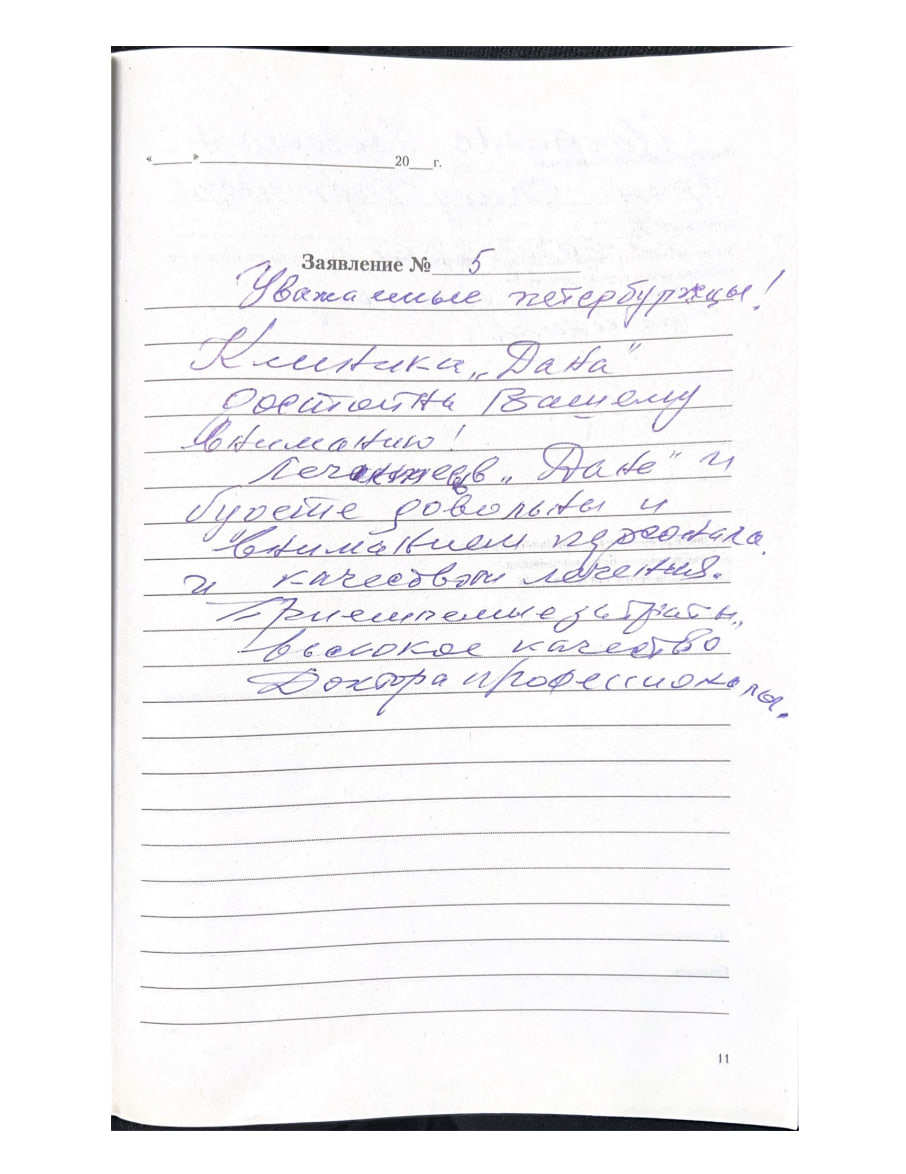 «_____»__________________________20___г.
Заявление № 5
Уважаемые петербуржцы!
Клиника „Дана"
достойна Вашему
вниманию!
в „Дане" и
будете довольны и
вниманием персонала
и качеством лечения.
Приемлемые затраты,
высокое качество
Доктора профессионалы.
11